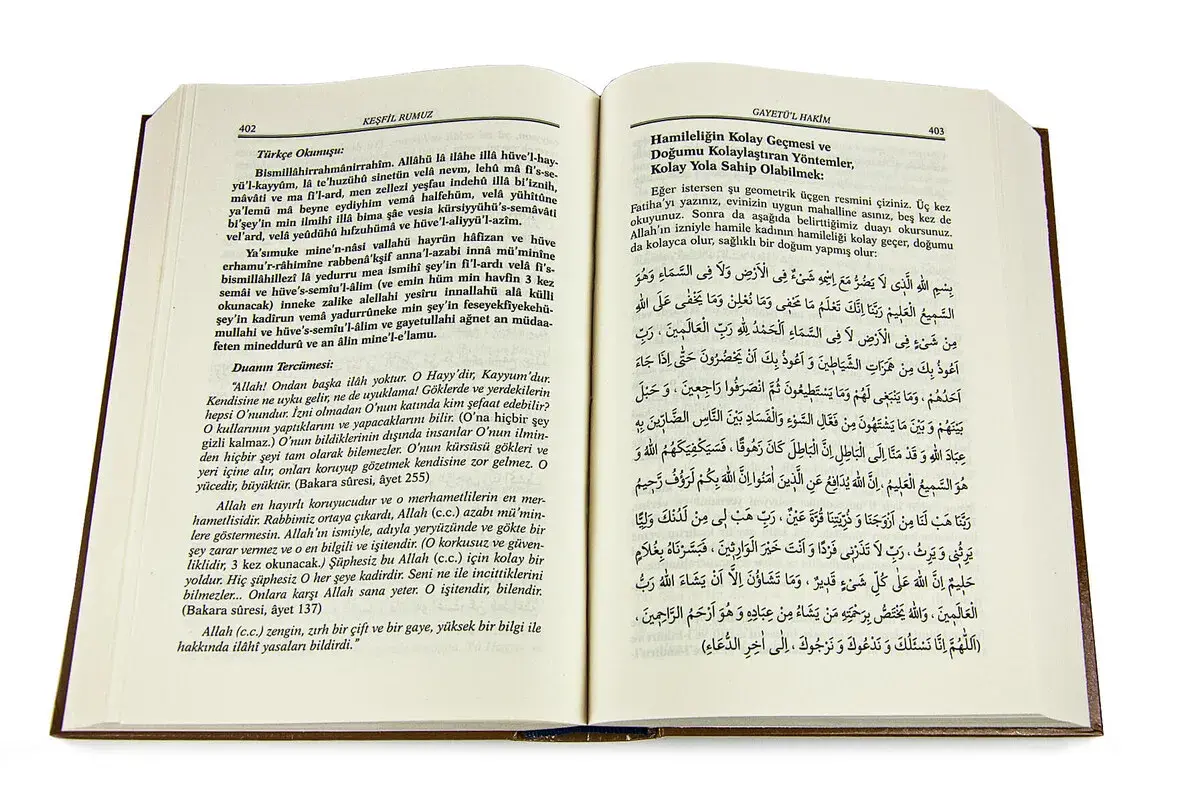 402
KEŞFİL RUMUZ
Türkçe Okunuşu:
Bismillâhirrahmânirrahîm. Allâhü lâ ilâhe illâ hüve'l-hay-
yü'l-kayyûm, lâ te'huzühû sinetün velâ nevm, lehû mâ fi's-se-
mâvâti ve ma fi'l-ard, men zellezî yeşfau indehû illâ bi'iznih,
ya'lemü mâ beyne eydiyhim vemâ halfehüm, velâ yühîtûne
bi'şey'in min ilmihî illâ bima şâe vesia kürsiyyühü's-semâvâti
vel'ard, velâ yeûdühû hıfzuhümâ ve hüve'l-aliyyü'l-azîm.
Ya'sımuke mine'n-nâsi vallahü hayrün hâfizan ve hüve
erhamu'r-râhimîne rabbenâ'kşif anna'l-azabi innâ mü'minîne
bismillâhillezî lâ yedurru mea ismihî şey'in fi'l-ardı velâ fi's-
semâi ve hüve's-semîu'l-âlim (ve emin hüm min havfin 3 kez
okunacak) inneke zalike alellahi yesîru innallahü alâ külli
şey'in kadîrun vemâ yadurrûneke min şey'in feseyekfiyekehü-
mullahi ve hüve's-semîu'l-âlim ve gayetullahi ağnet an müdaa-
feten mineddurû ve an âlin mine'l-e'lamu.
Duanın Tercümesi:
"Allah! Ondan başka ilâh yoktur. O Hayy'dir, Kayyum'dur.
Kendisine ne uyku gelir, ne de uyuklama! Göklerde ve yerdekilerin
hepsi O'nundur. İzni olmadan O'nun katında kim şefaat edebilir?
O kullarının yaptıklarını ve yapacaklarını bilir. (O'na hiçbir şey
gizli kalmaz.) O'nun bildiklerinin dışında insanlar O'nun ilmin-
den hiçbir şeyi tam olarak bilemezler. O'nun kürsüsü gökleri ve
yeri içine alır, onları koruyup gözetmek kendisine zor gelmez. O
yücedir, büyüktür. (Bakara sûresi, âyet 255)
Allah en hayırlı koruyucudur ve o merhametlilerin en mer-
hametlisidir. Rabbimiz ortaya çıkardı, Allah (c.c.) azabı mü'min-
lere göstermesin. Allah'ın ismiyle, adıyla yeryüzünde ve gökte bir
şey zarar vermez ve o en bilgili ve işitendir. (O korkusuz ve güven-
liklidir, 3 kez okunacak.) Şüphesiz bu Allah (c.c.) için kolay bir
yoldur. Hiç şüphesiz O her şeye kadirdir. Seni ne ile incittiklerini
bilmezler... Onlara karşı Allah sana yeter. O işitendir, bilendir.
(Bakara sûresi, âyet 137)
Allah (c.c.) zengin, zırh bir çift ve bir gaye, yüksek bir bilgi ile
hakkında ilâhî yasaları bildirdi."
GAYETÜ'L HAKİM
403
Hamileliğin Kolay Geçmesi ve
Doğumu Kolaylaştıran Yöntemler,
Kolay Yola Sahip Olabilmek:
Eğer istersen şu geometrik üçgen resmini çiziniz. Üç kez
Fatiha'yı yazınız, evinizin uygun mahalline asınız, beş kez de
okuyunuz. Sonra da aşağıda belirttiğimiz duayı okursunuz.
Allah'ın izniyle hamile kadının hamileliği kolay geçer, doğumu
da kolayca olur, sağlıklı bir doğum yapmış olur:
بِسْمِ اللهِ الَّذِى لَا يَضُرُّ مَعَ اِسْمِهِ شَىْءٌ فِى الْاَرْضِ وَلَا فِى السَّمَاءِ وَهُوَ
السَّمِيعُ الْعَلِيمُ رَبَّنَا اِنَّكَ تَعْلَمُ مَا نُخْفِى وَمَا نُعْلِنُ وَمَا يَخْفٰى عَلَى اللهِ
مِنْ شَىْءٍ فِى الْاَرْضِ لَا فِى السَّمَاءِ اَلْحَمْدُ لِلّٰهِ رَبِّ الْعَالَمِينَ ، رَبِّ
اَعُوذُ بِكَ مِنْ هَمَزَاتِ الشَّيَاطِينَ وَ اَعُوذُ بِكَ اَنْ يَحْضُرُونَ حَتّٰى اِذَا جَاءَ
اَحَدُهُمْ ، وَمَا يَنْبَغِى لَهُمْ وَمَا يَسْتَطِيعُونَ ثُمَّ انْصَرَفُوا رَاجِعِينَ ، وَ حَيْلَ
بَيْنَهُمْ وَ بَيْنَ مَا يَشْتَهُونَ مِنْ فَعَّالِ السُّوْءِ وَالْفَسَادِ بَيْنَ النَّاسِ الضَّارِّينَ بِهِ
عِبَادَ اللهِ وَ قَدْ مَنَّا اِلَى الْبَاطِلِ اِنَّ الْبَاطِلَ كَانَ زَهُوقًا ، فَسَيَكْفِيكَهُمُ اللهُ وَ
هُوَ السَّمِيعُ الْعَلِيمُ ، اِنَّ اللهَ يُدَافِعُ عَنِ الَّذِينَ اٰمَنُوا اِنَّ اللهَ بِكُمْ لَرَؤُفٌ رَحِيمٌ
رَبَّنَا هَبْ لَنَا مِنْ اَزْوَجِنَا وَ ذُرِّيَّتِنَا قُرَّةَ عَيْنٍ ، رَبِّ هَبْ لِى مِنْ لَدُنْكَ وَلِيًّا
يَرِثُنِى وَ يَرِثُ ، رَبِّ لَا تَذَرْنِى فَرْدًا وَ اَنْتَ خَيْرُ الْوَارِثِينَ ، فَبَشَّرْنَاهُ بِغُلَامٍ
حَلِيمٍ اِنَّ اللهَ عَلٰى كُلِّ شَىْءٍ قَدِيرٌ ، وَمَا تَشَاؤُنَ اِلَّا اَنْ يَشَاءَ اللهُ رَبُّ
الْعَالَمِينَ ، وَاللهُ يَخْتَصُّ بِرَحْمَتِهِ مَنْ يَشَاءُ مِنْ عِبَادِهِ وَ هُوَ اَرْحَمُ الرَّاحِمِينَ ،
(اَللّٰهُمَّ اِنَّا نَسْئَلُكَ وَ نَدْعُوكَ وَ نَرْجُوكَ ، اِلٰى اٰخِرِ الدُّعَاءِ)